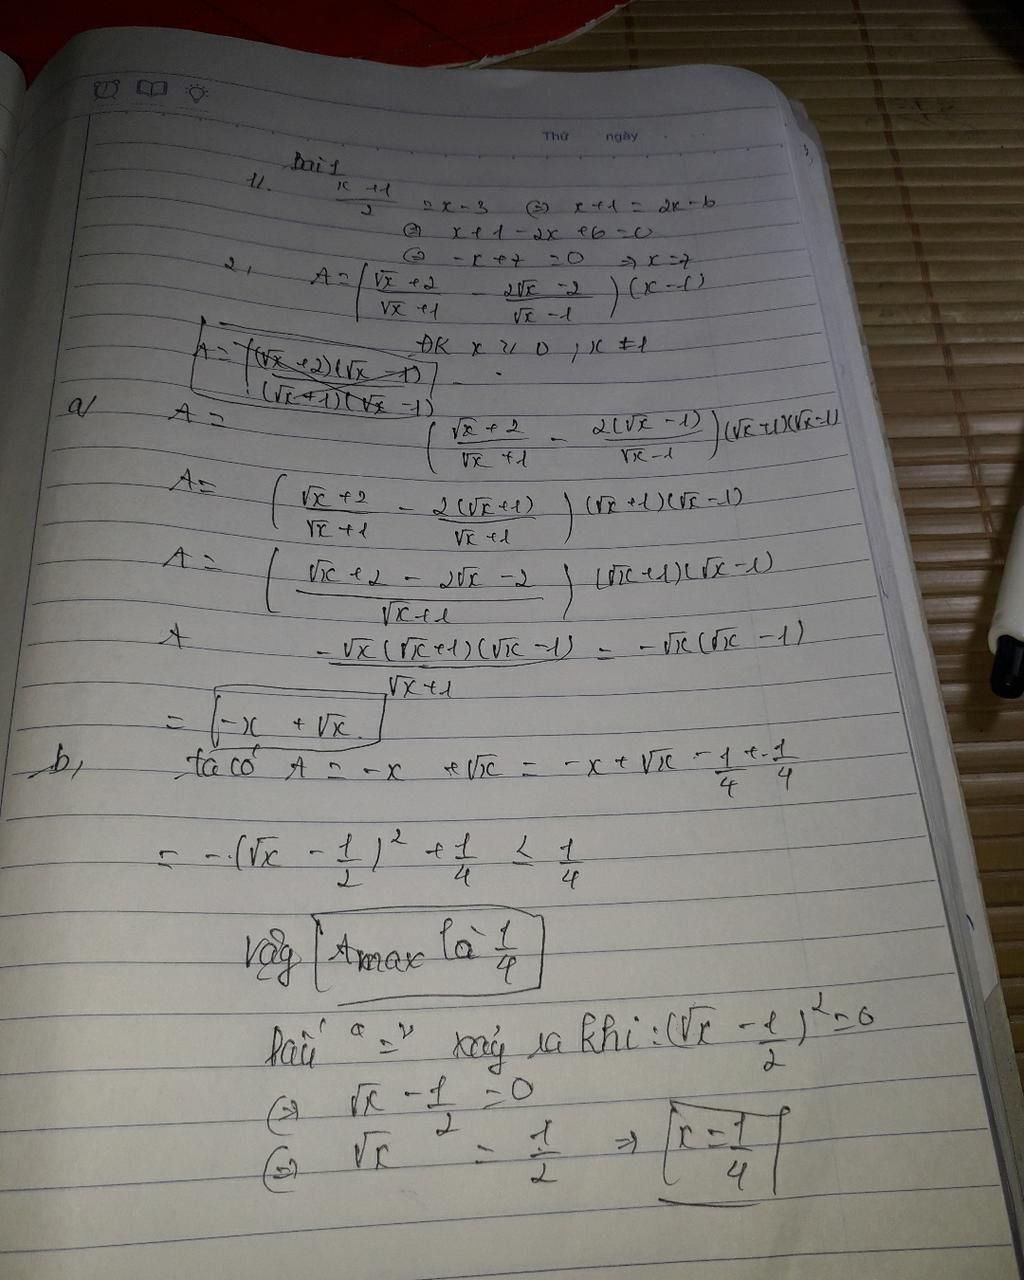 Thứ ngày
Bài 1
1/. (x+1)/2 = x-3 ⇔ x+1 = 2x-6
⇔ x+1-2x+6=0
⇔ -x+7=0 ⇒ x=7
2, A = ((√x+2)/(√x+1) - (2√x-2)/(√x-1))(x-1)
ĐK x ≥ 0 ; x ≠ 1
A = (√x+2)(√x-1)/(√x+1)(√x-1)
a/ A = ((√x+2)/(√x+1) - 2(√x-1)/(√x-1))(√x+1)(√x-1)
A = ((√x+2)/(√x+1) - 2(√x+1)/(√x+1))(√x+1)(√x-1)
A = ((√x+2-2√x-2)/(√x+1))(√x+1)(√x-1)
A -√x(√x+1)(√x-1)/(√x+1) = -√x(√x-1)
= -x+√x
b, ta có A = -x+√x = -x+√x - 1/4 + 1/4
= -(√x - 1/2)² + 1/4 ≤ 1/4
Vậy Amax là 1/4
Dấu "=" xảy ra khi: (√x - 1/2)² = 0
⇔ √x - 1/2 = 0
⇔ √x = 1/2 ⇒ x = 1/4